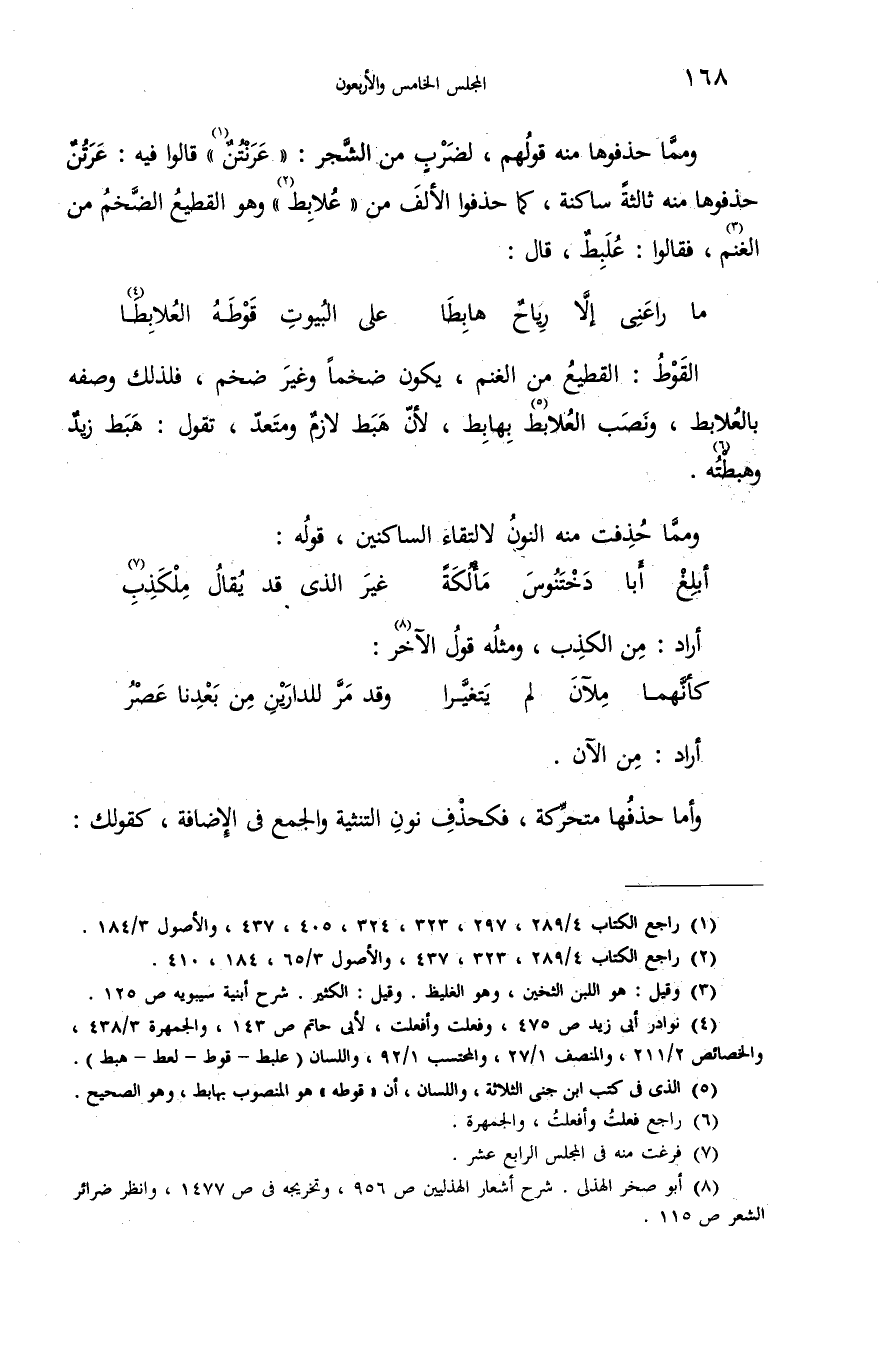 ١٦٨
المجلس الخامس والأربعون
وممَّا حذفوها منه قولُهم ، لضَرْبٍ من الشَّجر : « عَرَنْتُنٌ(١) » قالوا فيه : عَرَتُنٌ
حذفوها منه ثالثةً ساكنة ، كما حذفوا الألفَ من « عُلابِط(٢) » وهو القطيعُ الضَّخمُ من
الغنم(٣) ، فقالوا : عُلَبِطٌ ، قال :
ما راعَنِى إلَّا رِيَاحٌ هابِطَا على البُيوتِ قَوْطَهُ العُلابِطَا(٤)
القَوْطُ : القطيعُ من الغنم ، يكون ضخماً وغيرَ ضخم ، فلذلك وصفه
بالعُلابط ، ونَصَب العُلابِطَ(٥) بِهابِط ، لأنّ هَبَط لازمٌ ومتَعدّ ، تقول : هَبَط زيدٌ
وهبطْتُه(٦) .
وممَّا حُذِفت منه النونُ لالتقاءَ الساكنين ، قولُه :
أبلِغْ أَبا دَخْتَنُوسَ مَأْلُكَةً غيرَ الذى قد يُقالُ مِلْكَذِبِ(٧)
أراد : مِن الكذِب ، ومثلُه قولُ الآخَر(٨) :
كأنَّهما مِلآنَ لم يَتغيَّرا وقد مَرَّ للدارَيْنِ مِن بَعْدِنا عَصْرُ
أراد : مِن الآن .
وأما حذفُها متحرِّكة ، فكحذْفِ نونِ التثنية والجمع فى الإضافة ، كقولك :
(١) راجع الكتاب ٢٨٩/٤ ، ٢٩٧ ، ٣٢٣ ، ٣٢٤ ، ٤٠٥ ، ٤٣٧ ، والأصول ١٨٤/٣ .
(٢) راجع الكتاب ٢٨٩/٤ ، ٣٢٣ ، ٤٣٧ ، والأصول ٦٥/٣ ، ١٨٤ ، ٤١٠ .
(٣) وقيل : هو اللبن الثخين ، وهو الغليظ . وقيل : الكثير . شرح أبنية سيبويه ص ١٢٥ .
(٤) نوادر أبى زيد ص ٤٧٥ ، وفعلت وأفعلت ، لأبى حاتم ص ١٤٣ ، والجمهرة ٤٣٨/٣ ،
والخصائص ٢١١/٢ ، والمنصف ٢٧/١ ، والمحتسب ٩٢/١ ، واللسان ( علبط – قوط – لعط – هبط ) .
(٥) الذى فى كتب ابن جنى الثلاثة ، واللسان ، أن « قوطه » هو المنصوب بهابط ، وهو الصحيح .
(٦) راجع فعلتُ وأفعلتُ ، والجمهرة .
(٧) فرغت منه فى المجلس الرابع عشر .
(٨) أبو صخر الهذلى . شرح أشعار الهذليين ص ٩٥٦ ، وتخريجه فى ص ١٤٧٧ ، وانظر ضرائر
الشعر ص ١١٥ .